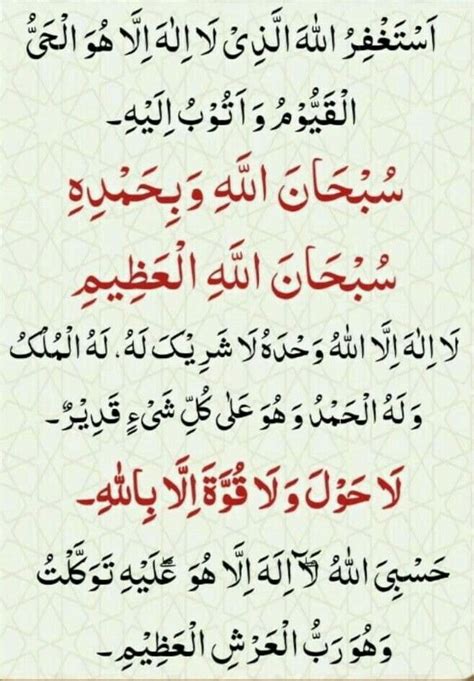 اَسْتَغْفِرُ اللهَ الَّذِیْ لَا اِلٰهَ اِلَّا هُوَ الْحَیُّ
الْقَیُّوْمُ وَ اَتُوْبُ اِلَیْهِ۔
سُبْحَانَ اللَّهِ وَبِحَمْدِهِ
سُبْحَانَ اللَّهِ الْعَظِيمِ
لَا اِلٰهَ اِلَّا اللهُ وَحْدَهُ لَا شَرِیْکَ لَهُ، لَهُ الْمُلْکُ
وَ لَهُ الْحَمْدُ وَ هُوَ عَلٰی کُلِّ شَیْءٍ قَدِیْرٌ۔
لَا حَوْلَ وَ لَا قُوَّةَ اِلَّا بِاللهِ۔
حَسْبِیَ اللهُ لَاۤ اِلٰهَ اِلَّا هُوَ ؕ عَلَیْهِ تَوَکَّلْتُ
وَ هُوَ رَبُّ الْعَرْشِ الْعَظِیْمِ۔